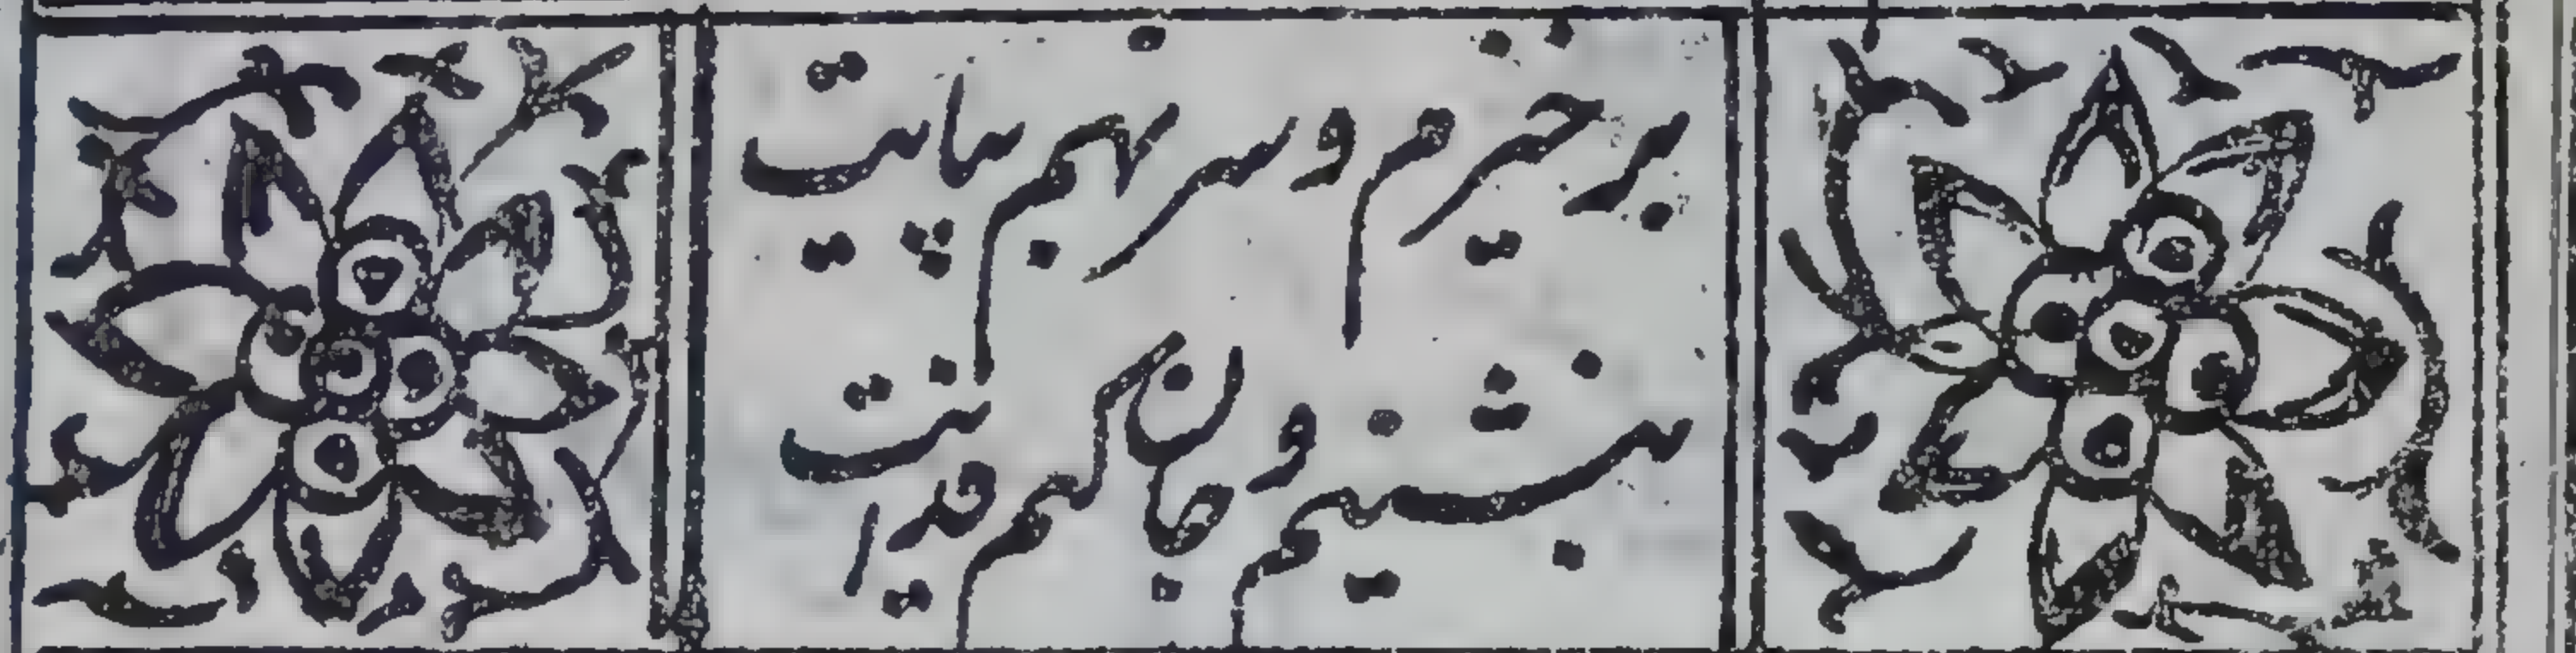 برخیزم و سر نهم بپایت
بنشینم و جان کنم فدایت